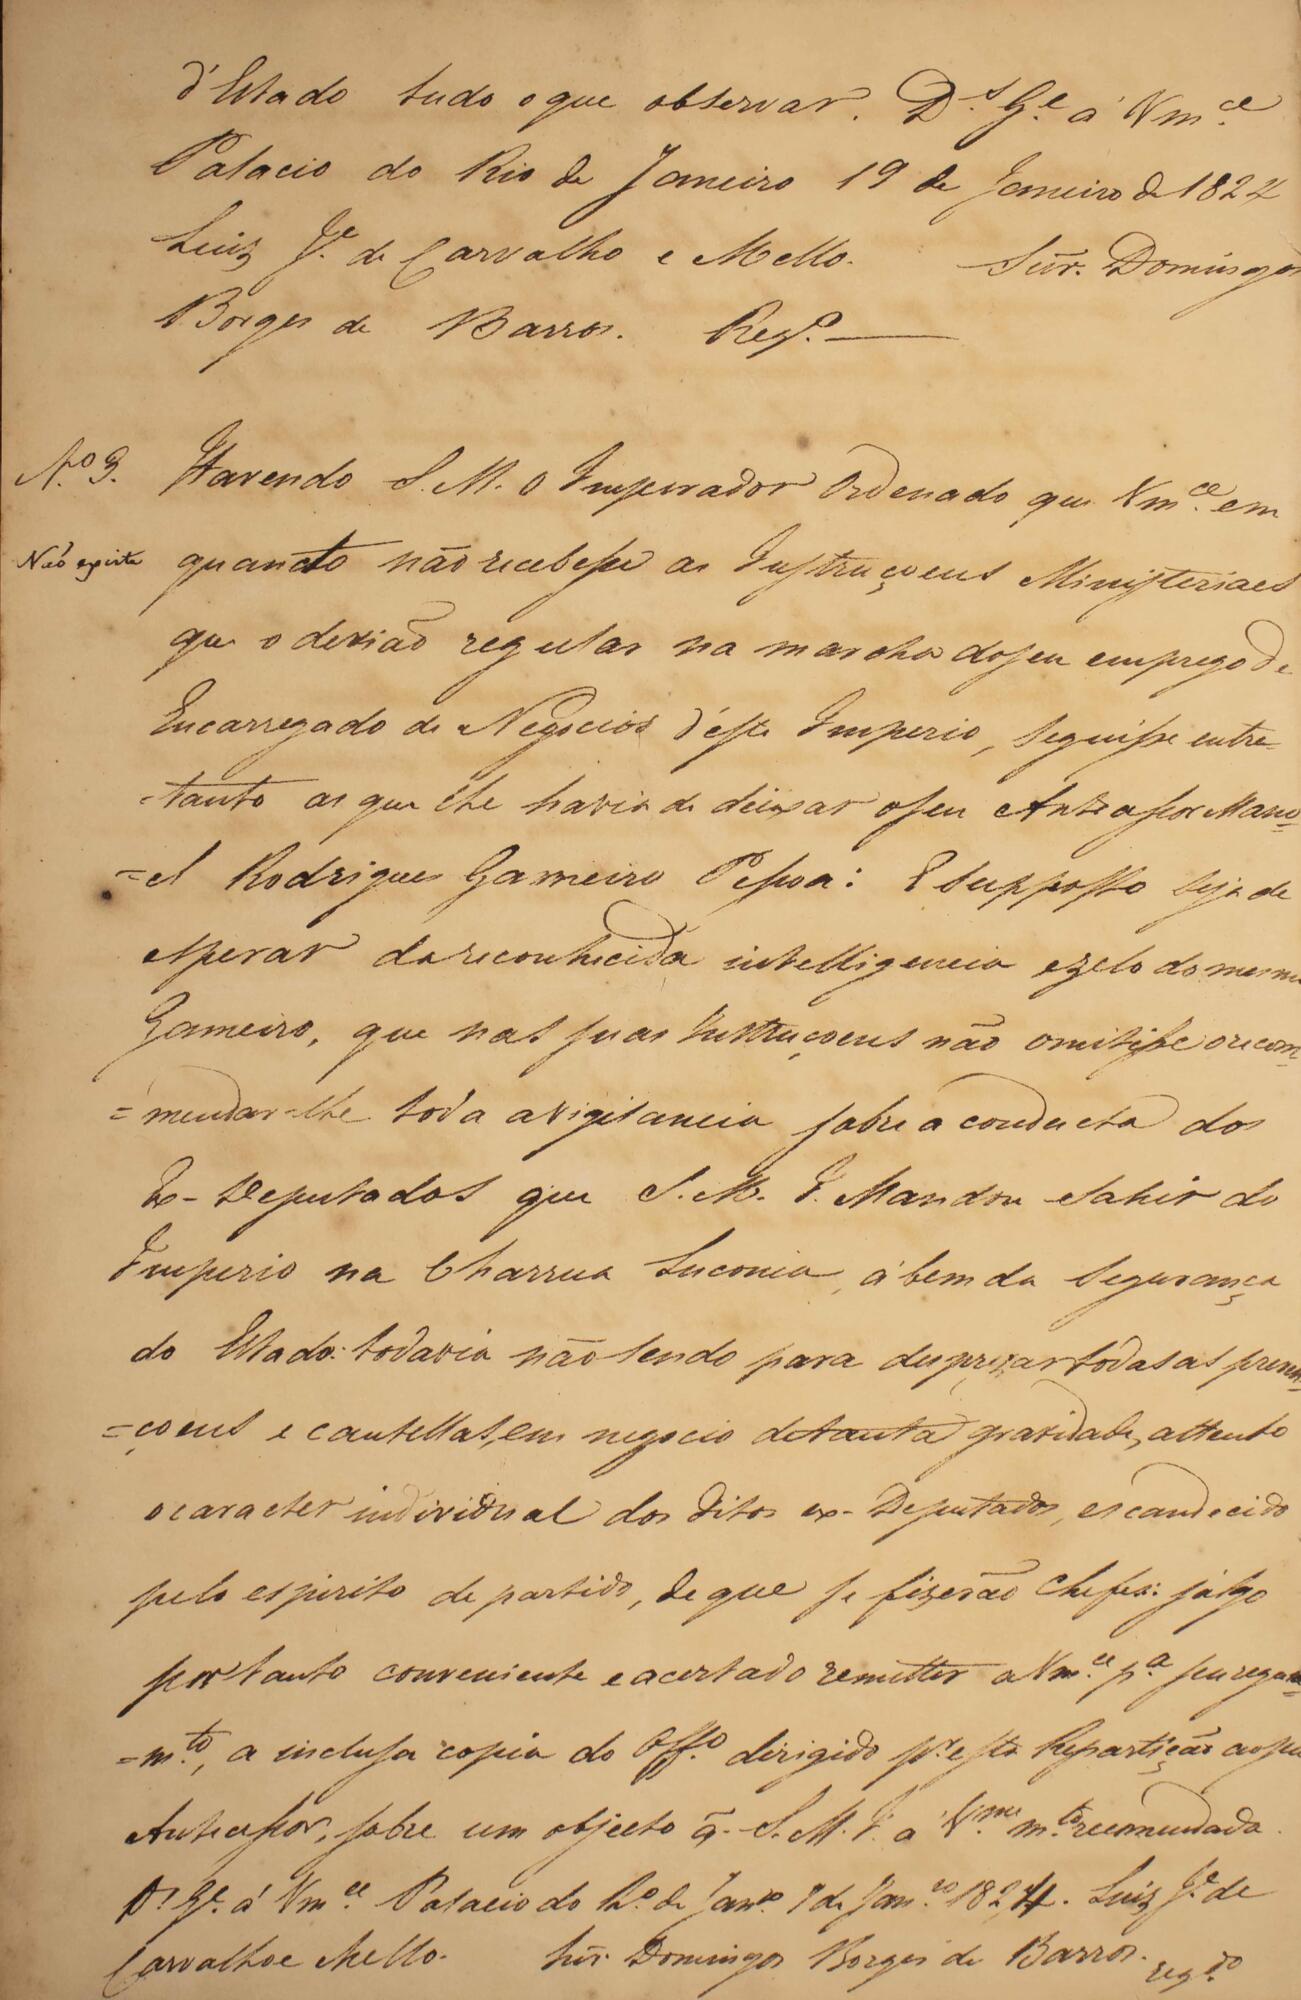 d'Estado tudo o que observar. D.s G.e a Vm.ce
Palacio do Rio de Janeiro 19 de Janeiro de 1824
Luiz J.e de Carvalho e Mello. Snr. Domingos
Borges de Barros. Reg.o
N.o 3. Havendo S. M. o Imperador Ordenado que Vm.ce em
Não existe quanto não recebesse as Instrucçoens Ministeriaes
que o devião regular na marcha do seu emprego de
Encarregado de Negocios d'este Imperio, seguisse entre-
=tanto as que lhe havia de deixar o seu Antecessor Mano-
=el Rodrigues Gameiro Pessoa: E supposto seja de
esperar da reconhecida intelligencia e zelo do mesmo
Gameiro, que nas suas Instrucçoens não omitisse o recom-
=mendar-lhe toda a vigilancia sobre a conducta dos
Ex-Deputados que S. M. I. Mandou Sahir do
Imperio na Charrua Luconia, á bem da Segurança
do Estado: todavia não sendo para desprezar todas as preven-
=çoens e cautellas, em negocio de tanta gravidade, attento
o caracter individual dos ditos ex-Deputados, escandecido
pelo espirito de partido, de que se fizerão Chefes: julgo
por tanto conveniente e acertado remetter a Vm.ce p.a seu regula-
=m.to, a inclusa copia do Off.o dirigido p.r esta Repartição ao seu
Antecessor, sobre um objecto q̃ S. M. I. a V.me m.to recomendada.
D.s G.e á Vm.ce Palacio do R.o de Jan.ro 9 de Jan.ro 1824. Luiz J.e de
Carvalho e Mello. Snr. Domingos Borges de Barros. reg.do